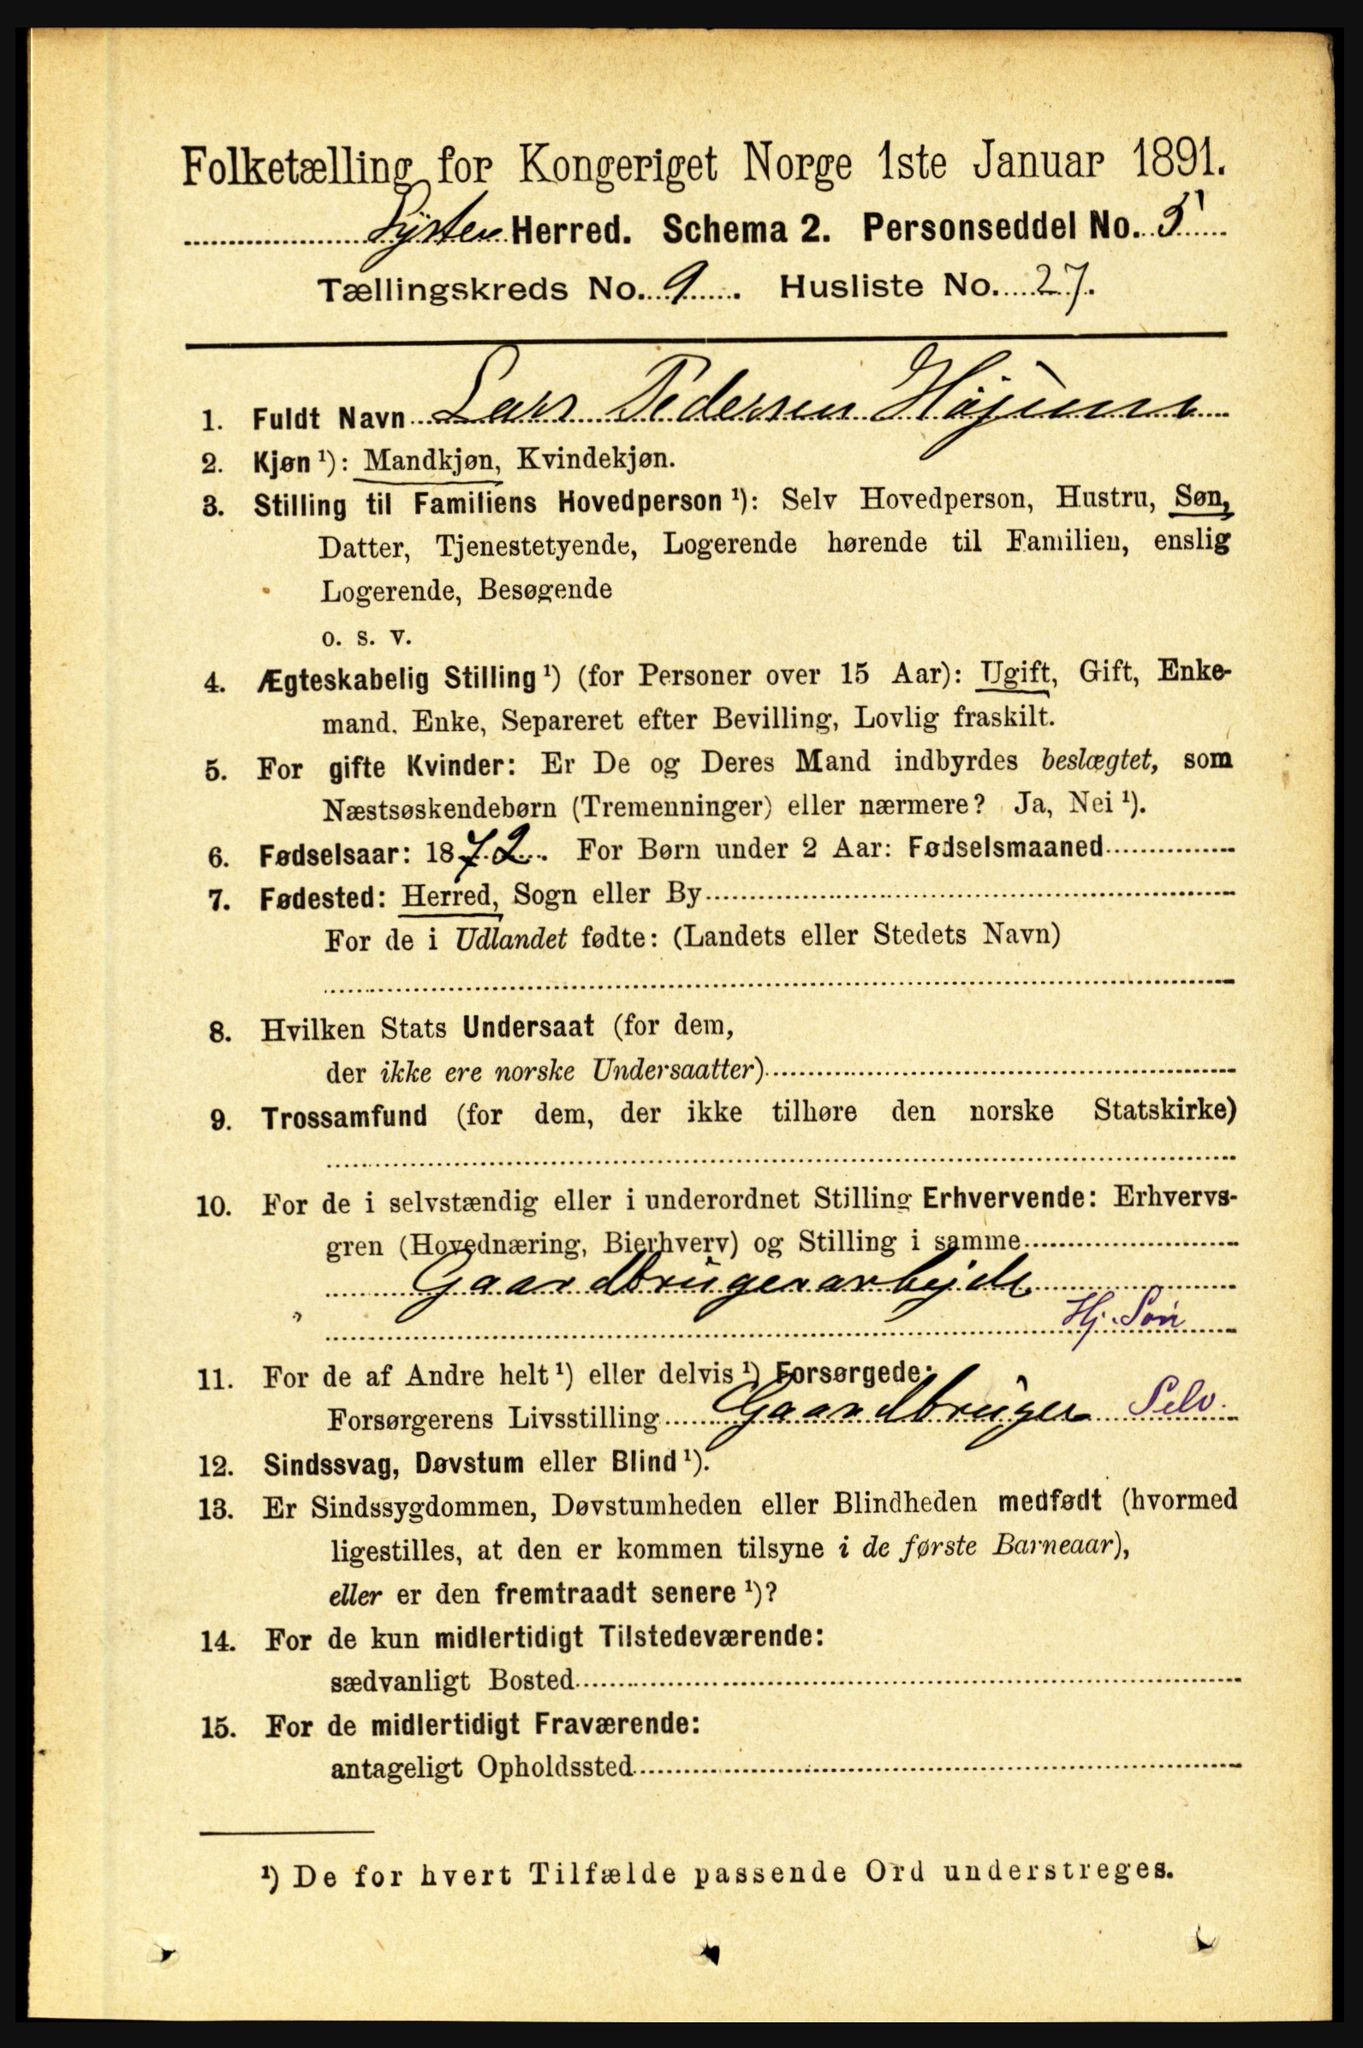 Folketælling for Kongeriget Norge 1ste Januar 1891.
Lyster Herred. Schema 2. Personseddel No. 5
Tællingskreds No. 9. Husliste No. 27.
1. Fuldt Navn Lars Pedersen Højum
2. Kjøn ¹): Mandkjøn, Kvindekjøn.
3. Stilling til Familiens Hovedperson ¹): Selv Hovedperson, Hustru, Søn,
Datter, Tjenestetyende, Logerende hørende til Familien, enslig
Logerende, Besøgende
o. s. v.
4. Ægteskabelig Stilling ¹) (for Personer over 15 Aar): Ugift, Gift, Enke-
mand, Enke, Separeret efter Bevilling, Lovlig fraskilt.
5. For gifte Kvinder: Er De og Deres Mand indbyrdes beslægtet, som
Næstsøskendebørn (Tremenninger) eller nærmere? Ja, Nei ¹).
6. Fødselsaar: 1872. For Børn under 2 Aar: Fødselsmaaned
7. Fødested: Herred, Sogn eller By
For de i Udlandet fødte: (Landets eller Stedets Navn)
8. Hvilken Stats Undersaat (for dem,
der ikke ere norske Undersaatter)
9. Trossamfund (for dem, der ikke tilhøre den norske Statskirke)
10. For de i selvstændig eller i underordnet Stilling Erhvervende: Erhvervs-
gren (Hovednæring, Bierhverv) og Stilling i samme
Gaardbrugerarbejde
Hj. Søn
11. For de af Andre helt ¹) eller delvis ¹) Forsørgede:
Forsørgerens Livsstilling Gaardbruger Selv.
12. Sindssvag, Døvstum eller Blind ¹).
13. Er Sindssygdommen, Døvstumheden eller Blindheden medfødt (hvormed
ligestilles, at den er kommen tilsyne i de første Barneaar),
eller er den fremtraadt senere ¹)?
14. For de kun midlertidigt Tilstedeværende:
sædvanligt Bosted
15. For de midlertidigt Fraværende:
antageligt Opholdssted
¹) De for hvert Tilfælde passende Ord understreges.